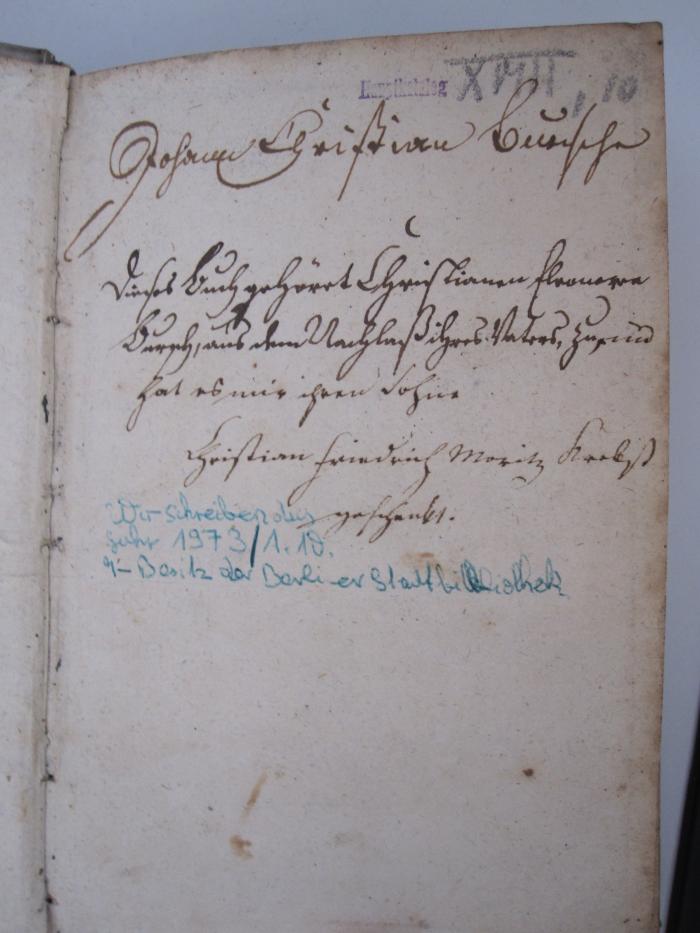 Hauptkatalog XVIII, 10
Johann Christian Bursche
Dieses Buch gehöret Christianen Eleonoren
Bursch, aus dem Nachlaß ihres Vaters, zu, und
hat es mir ihren Sohne
Christian Friedrich Moritz Krebs
geschenkt.
Wir schreiben das
Jahr 1973/1.10.
Besitz der Berliner Stadtbibliothek